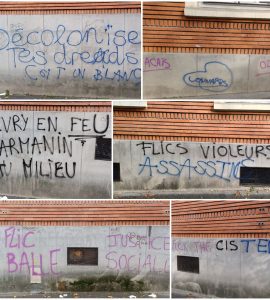 Décolonise
tes dreads
C'EST UN BLANC
ACAB
VRY EN FEU
ARMANIN
AU MILIEU
FLICS VIOLEURS
ASSASSINS
FLIC
BALLE
JUSTICE
SOCIALE
FUCK THE CIS